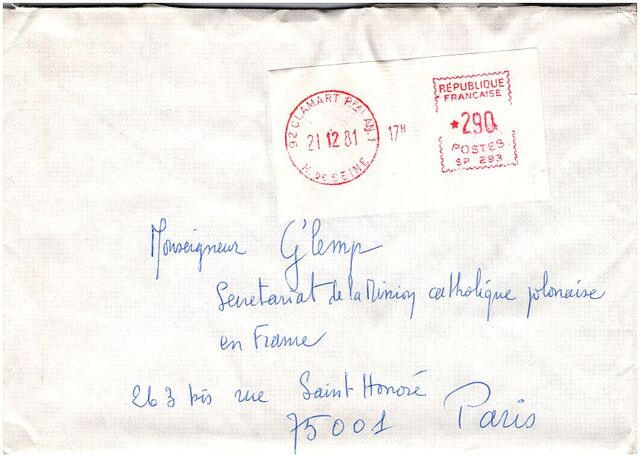 92 CLAMART PPAL AN.1
21 12 81
H. DE SEINE
17H
RÉPUBLIQUE
FRANÇAISE
★290
POSTES
SP 293
Monseigneur G'lemp
Secretariat de la Mission catholique polonaise
en France
263 bis rue Saint Honoré
75001 Paris